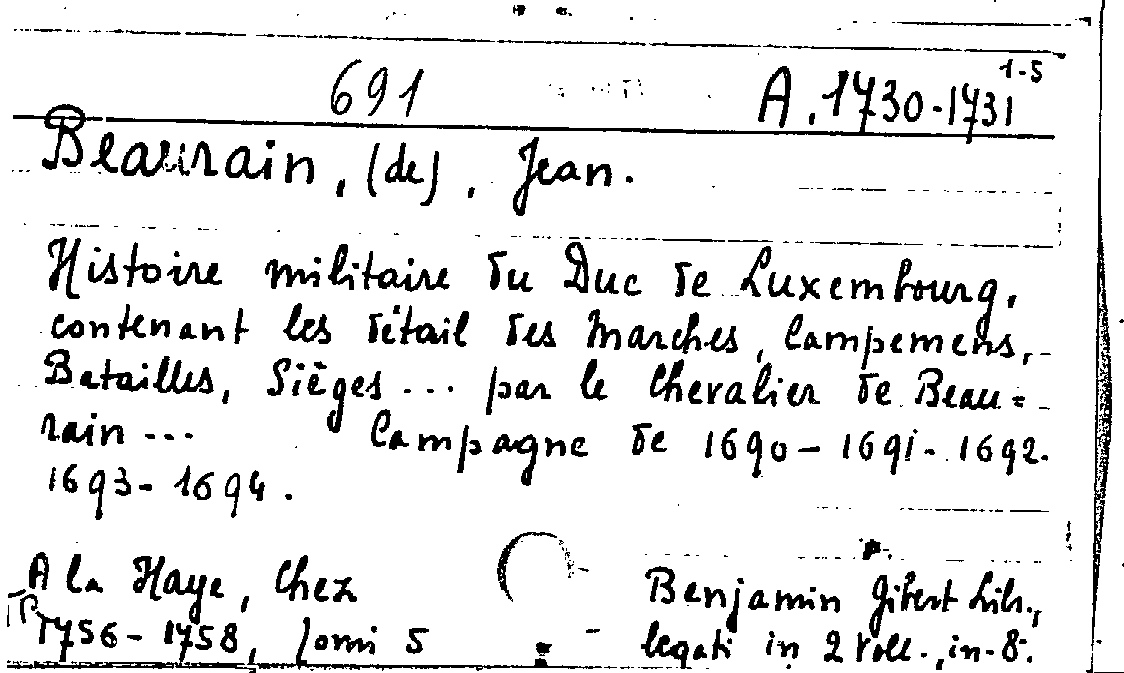 691 A. 1730-1731 1-5
Beaurain, (de), Jean.
Histoire militaire du Duc de Luxembourg,
contenant les détail des Marches, Campemens,
Batailles, Sièges... par le Chevalier de Beau=
rain... Campagne de 1690-1691-1692.
1693-1694.
A la Haye, Chez Benjamin Gibert Libr.,
1756-1758, tomi 5 legati in 2 Voll., in-8.